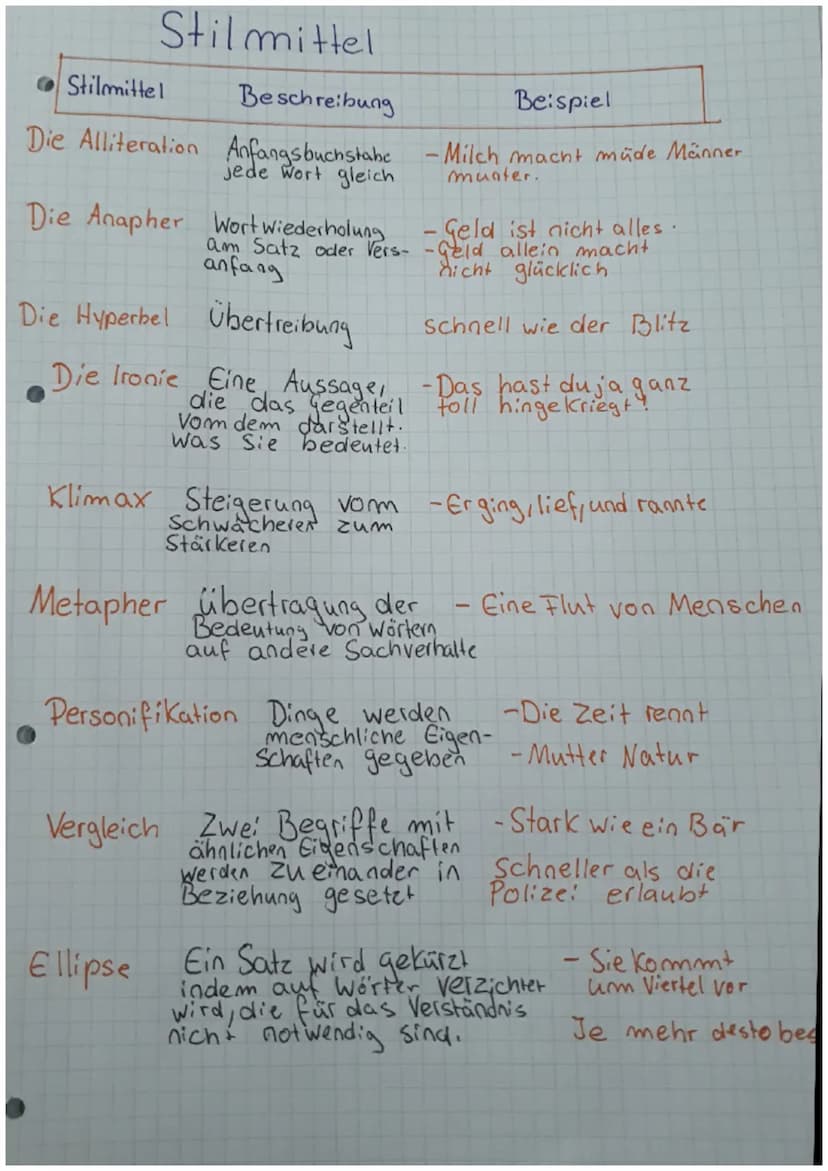 Stilmittel
Stilmittel Beschreibung Beispiel
Die Alliteration Anfangsbuchstabe - Milch macht müde Männer
jede Wort gleich munter.
Die Anapher Wortwiederholung - Geld ist nicht alles.
am Satz oder Vers- - Geld allein macht
anfang nicht glücklich
Die Hyperbel Übertreibung schnell wie der Blitz
Die Ironie Eine Aussage, - Das hast du ja ganz
die das Gegenteil toll hingekriegt!
vom dem darstellt.
was Sie bedeutet.
Klimax Steigerung vom - Er ging, lief, und rannte
Schwächeren zum
Stärkeren
Metapher übertragung der - Eine Flut von Menschen
Bedeutung von Wörtern
auf andere Sachverhalte
Personifikation Dinge werden - Die Zeit rennt
menschliche Eigen-
schaften gegeben - Mutter Natur
Vergleich Zwei Begriffe mit - Stark wie ein Bär
ähnlichen Eigenschaften
werden zueinander in Schneller als die
Beziehung gesetzt Polizei erlaubt
Ellipse Ein Satz wird gekürzt - Sie kommt
indem auf Wörter verzichter um Viertel vor
wird, die für das Verständnis
nicht notwendig sind. Je mehr desto bes